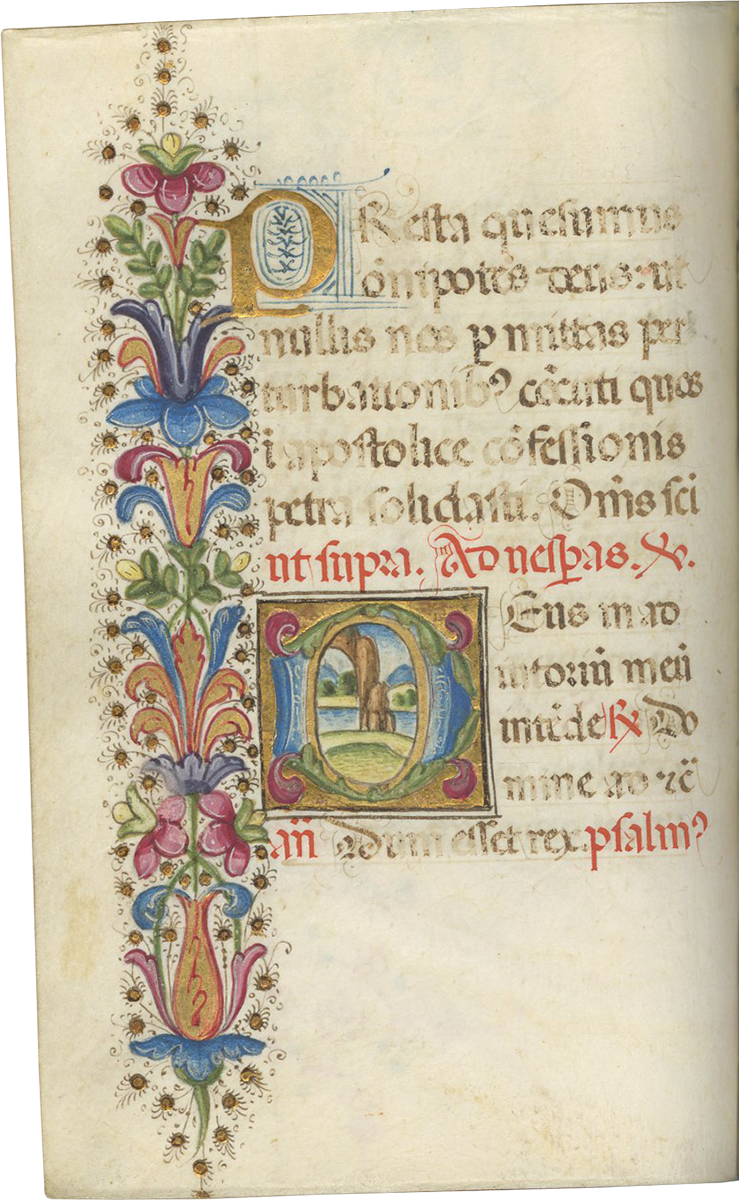 PResta quesumus
om̄ipote͂s deus: ut
nullis nos ꝑmittas per
turbationibꝰ co͂cuti quos
i apostolice co͂fessionis
petra solidasti. Om̄s sc̄i
ut supra. Ad uesꝑas. V.
DEus in ad
iutoriū meū
inte͂de R Do
mine ad &c̄
an̄ Dum esset rex. psalmꝰ